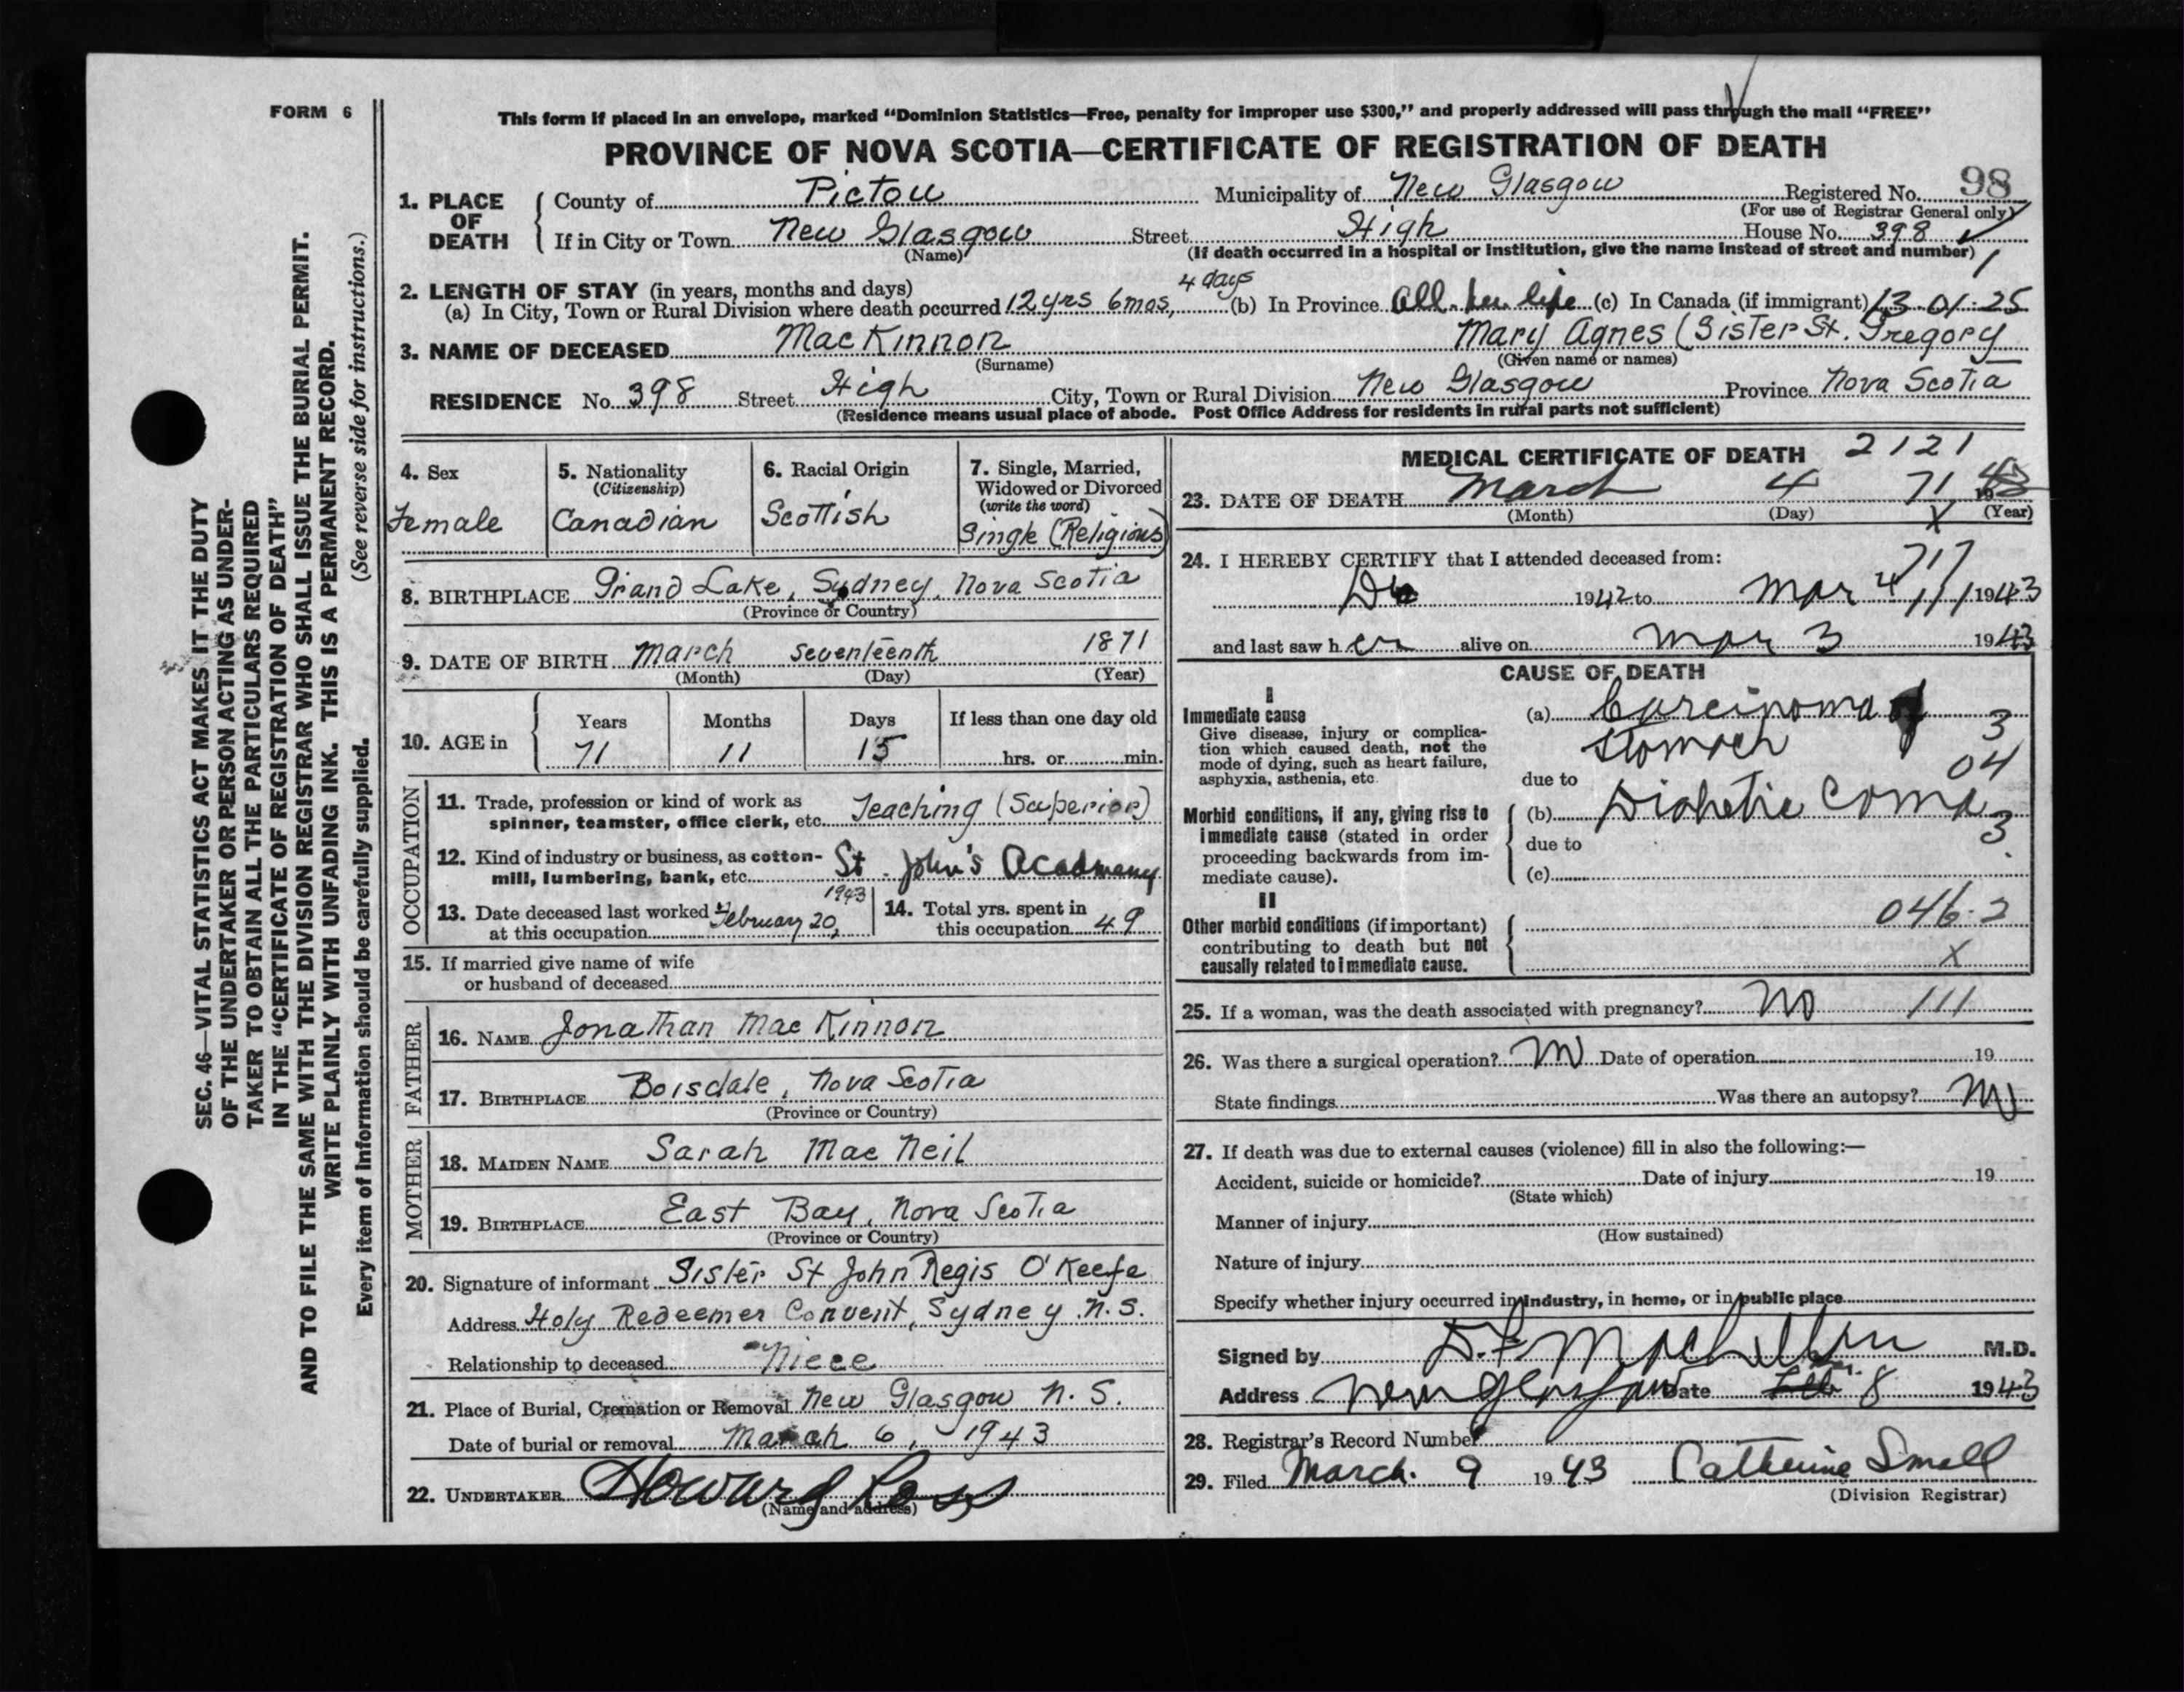 FORM 6
This form if placed in an envelope, marked “Dominion Statistics—Free, penalty for improper use $300,” and properly addressed will pass through the mail “FREE”
PROVINCE OF NOVA SCOTIA—CERTIFICATE OF REGISTRATION OF DEATH
1. PLACE OF DEATH
County of Pictou Municipality of New Glasgow Registered No. 98
(For use of Registrar General only)
If in City or Town New Glasgow Street High House No. 398
(Name) (If death occurred in a hospital or institution, give the name instead of street and number) 1
2. LENGTH OF STAY (in years, months and days) 4 days
(a) In City, Town or Rural Division where death occurred 12 yrs 6 mos, (b) In Province All her life (c) In Canada (if immigrant) 13-01-25
3. NAME OF DECEASED MacKinnon Mary Agnes (Sister St. Gregory
(Surname) (Given name or names)
RESIDENCE No. 398 Street High City, Town or Rural Division New Glasgow Province Nova Scotia
(Residence means usual place of abode. Post Office Address for residents in rural parts not sufficient)
4. Sex
Female
5. Nationality
(Citizenship)
Canadian
6. Racial Origin
Scottish
7. Single, Married,
Widowed or Divorced
(write the word)
Single (Religious)
8. BIRTHPLACE Grand Lake, Sydney, Nova Scotia
(Province or Country)
9. DATE OF BIRTH March seventeenth 1871
(Month) (Day) (Year)
10. AGE in
Years Months Days If less than one day old
71 11 15 hrs. or min.
OCCUPATION
11. Trade, profession or kind of work as
spinner, teamster, office clerk, etc. Teaching (Superior)
12. Kind of industry or business, as cotton-
mill, lumbering, bank, etc. St. John's Acadmemy
13. Date deceased last worked
at this occupation February 20, 1943
14. Total yrs. spent in
this occupation 49
15. If married give name of wife
or husband of deceased
FATHER
16. NAME Jonathan MacKinnon
17. BIRTHPLACE Boisdale, Nova Scotia
(Province or Country)
MOTHER
18. MAIDEN NAME Sarah MacNeil
19. BIRTHPLACE East Bay, Nova Scotia
(Province or Country)
20. Signature of informant Sister St John Regis O'Keefe
Address Holy Redeemer Convent, Sydney N.S.
Relationship to deceased Niece
21. Place of Burial, Cremation or Removal New Glasgow N.S.
Date of burial or removal March 6, 1943
22. UNDERTAKER Howard Ross
(Name and address)
MEDICAL CERTIFICATE OF DEATH 2121
23. DATE OF DEATH March 4 71 1943
(Month) (Day) X (Year)
24. I HEREBY CERTIFY that I attended deceased from: 717
1942 to Mar 4 111 1943
and last saw her alive on Mar 3 1943
CAUSE OF DEATH
I
Immediate cause
Give disease, injury or complica-
tion which caused death, not the
mode of dying, such as heart failure,
asphyxia, asthenia, etc.
(a) Carcinoma of 3
stomach
due to 04
Morbid conditions, if any, giving rise to
immediate cause (stated in order
proceeding backwards from im-
mediate cause).
(b) Diabetic Coma
due to 3
(c)
II
Other morbid conditions (if important)
contributing to death but not
causally related to immediate cause.
046.2
X
25. If a woman, was the death associated with pregnancy? No 111
26. Was there a surgical operation? No Date of operation 19
State findings Was there an autopsy? No
27. If death was due to external causes (violence) fill in also the following:—
Accident, suicide or homicide? Date of injury 19
(State which)
Manner of injury
(How sustained)
Nature of injury
Specify whether injury occurred in industry, in home, or in public place
Signed by D.F. MacLellan M.D.
Address New Glasgow Date Feb Mar. 8 1943
28. Registrar's Record Number
29. Filed March 9 1943 Catherine Small
(Division Registrar)
SEC. 46—VITAL STATISTICS ACT MAKES IT THE DUTY
OF THE UNDERTAKER OR PERSON ACTING AS UNDER-
TAKER TO OBTAIN ALL THE PARTICULARS REQUIRED
IN THE “CERTIFICATE OF REGISTRATION OF DEATH”
AND TO FILE THE SAME WITH THE DIVISION REGISTRAR WHO SHALL ISSUE THE BURIAL PERMIT.
WRITE PLAINLY WITH UNFADING INK. THIS IS A PERMANENT RECORD.
Every item of information should be carefully supplied. (See reverse side for instructions.)